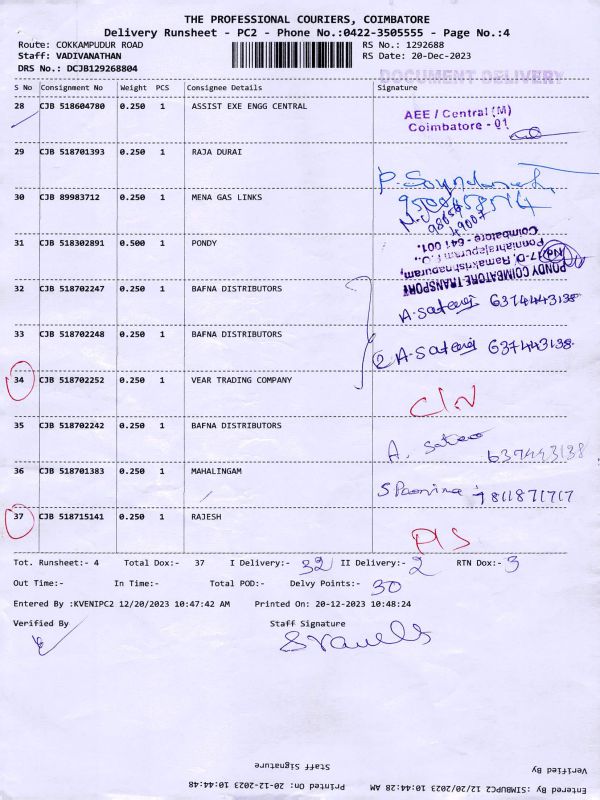 THE PROFESSIONAL COURIERS, COIMBATORE
Delivery Runsheet - PC2 - Phone No.:0422-3505555 - Page No.:4
Route: COKKAMPUDUR ROAD RS No.: 1292688
Staff: VADIVANATHAN RS Date: 20-Dec-2023
DRS No.: DCJB129268804
DOCUMENT DELIVERY
S No Consignment No Weight PCS Consignee Details Signature
28 CJB 518604780 0.250 1 ASSIST EXE ENGG CENTRAL
AEE / Central (M)
Coimbatore - 01
29 CJB 518701393 0.250 1 RAJA DURAI
30 CJB 89983712 0.250 1 MENA GAS LINKS
31 CJB 518302891 0.500 1 PONDY
PONDY COIMBATORE TRANSPORT
Coimbatore - 641 001.
32 CJB 518702247 0.250 1 BAFNA DISTRIBUTORS
6374443138
33 CJB 518702248 0.250 1 BAFNA DISTRIBUTORS
2
34 CJB 518702252 0.250 1 VEAR TRADING COMPANY
35 CJB 518702242 0.250 1 BAFNA DISTRIBUTORS
36 CJB 518701383 0.250 1 MAHALINGAM
37 CJB 518715141 0.250 1 RAJESH
Tot. Runsheet:- 4 Total Dox:- 37 I Delivery:- 32 II Delivery:- 2 RTN Dox:- 3
Out Time:- In Time:- Total POD:- Delvy Points:- 30
Entered By :KVENIPC2 12/20/2023 10:47:42 AM Printed On: 20-12-2023 10:48:24
Verified By Staff Signature
Verified By Staff Signature
Entered By :SIMBUPC2 12/20/2023 10:44:28 AM Printed On: 20-12-2023 10:44:48